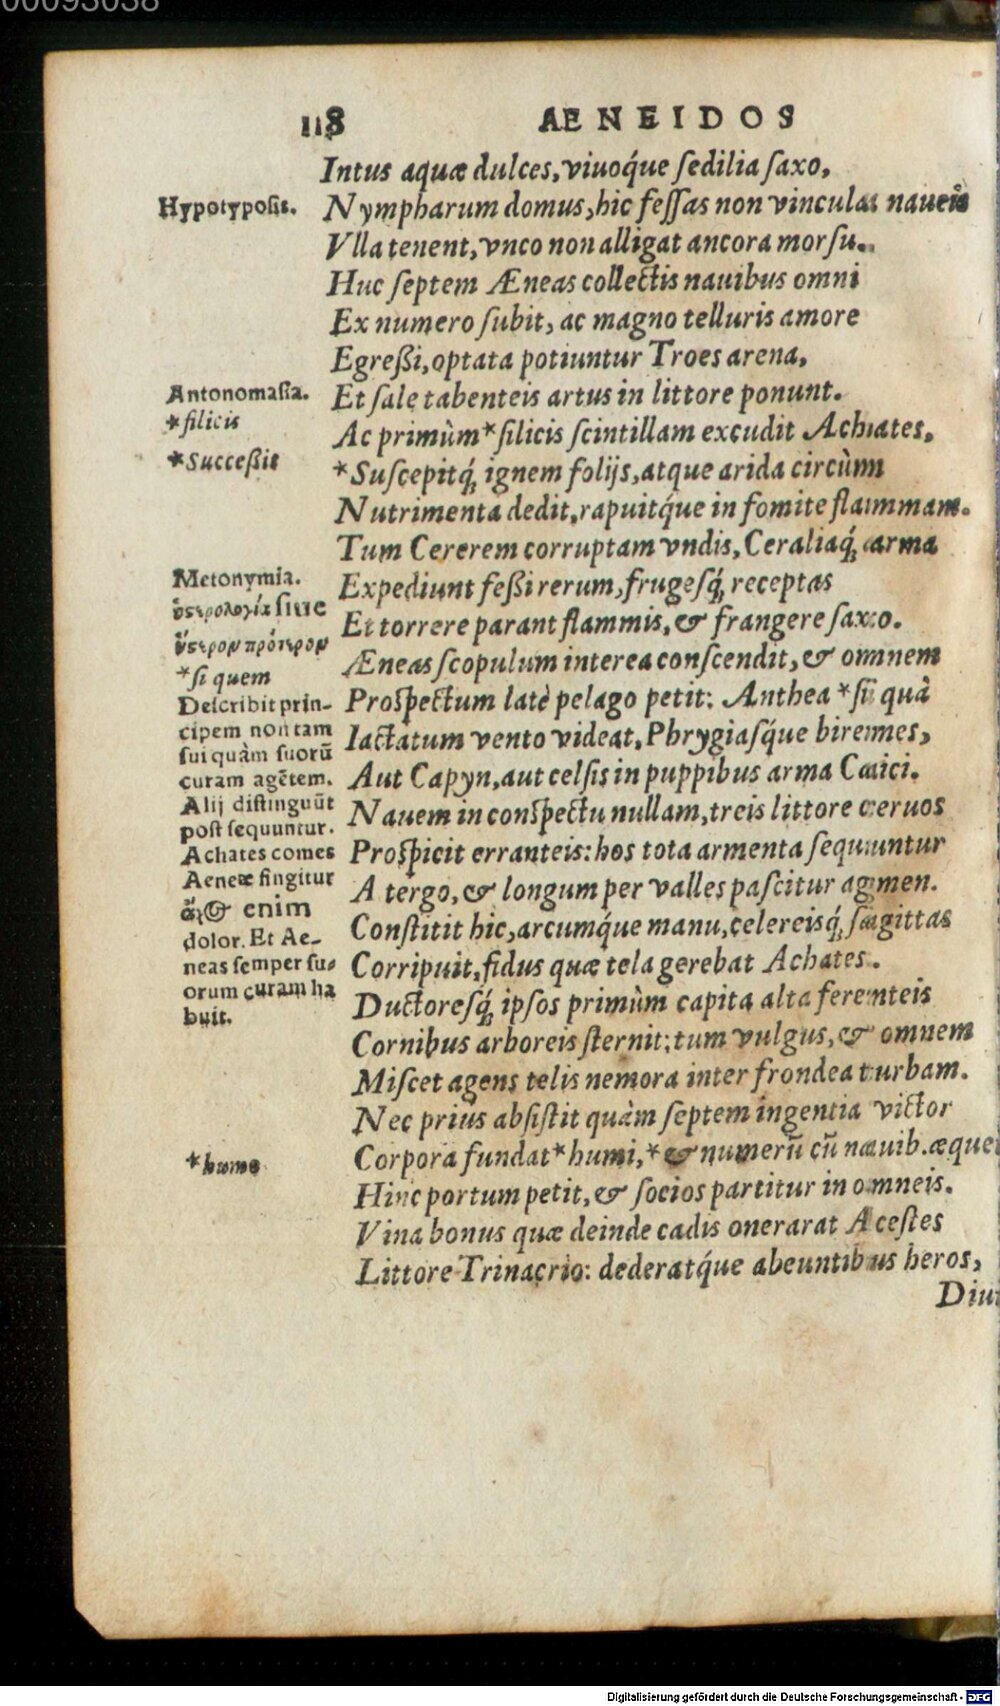 00093038
118 AENEIDOS
Intus aquæ dulces, viuoq́ue ſedilia ſaxo,
Hypotypoſis.
Nympharum domus, hic feſſas non vincula naueis
Vlla tenent, vnco non alligat ancora morſu.
Huc ſeptem Æneas collectis nauibus omni
Ex numero ſubit, ac magno telluris amore
Egreßi, optata potiuntur Troes arena,
Antonomaſia.
Et ſale tabenteis artus in littore ponunt.
*ſilicis
Ac primùm *ſilicis ſcintillam excudit Achates,
*Succeßit
*Suſcepitq́; ignem folijs, atque arida circùm
Nutrimenta dedit, rapuitq́ue in fomite flammam.
Tum Cererem corruptam vndis, Cerealiaq́; arma
Metonymia.
Expediunt feßi rerum, frugeſq́; receptas
ὑστερολογία ſiue
Et torrere parant flammis, & frangere ſaxo.
ὕστερον πρότερον
Æneas ſcopulum interea conſcendit, & omnem
*ſi quem
Proſpectum latè pelago petit: Anthea *ſi quà
Deſcribit prin-
cipem non tam
Iactatum vento videat, Phrygiaſq́ue biremes,
ſui quàm ſuorũ
curam agẽtem.
Aut Capyn, aut celſis in puppibus arma Caici.
Alij diſtinguũt
Nauem in conſpectu nullam, treis littore ceruos
poſt ſequuntur.
Achates comes
Proſpicit erranteis: hos tota armenta ſequuntur
Aeneæ fingitur
A tergo, & longum per valles paſcitur agmen.
ἄχος enim
Conſtitit hic, arcumq́ue manu, celereisq́; ſagittas
dolor. Et Ae-
neas ſemper ſu-
Corripuit, fidus quæ tela gerebat Achates.
orum curam ha
Ductoreſq́; ipſos primùm capita alta ferenteis
buit.
Cornibus arboreis ſternit: tum vulgus, & omnem
Miſcet agens telis nemora inter frondea turbam.
Nec prius abſiſtit quàm ſeptem ingentia victor
*humo
Corpora fundat *humi, *& numerũ cũ nauib. æquet
Hinc portum petit, & ſocios partitur in omneis.
Vina bonus quæ deinde cadis onerarat Aceſtes
Littore Trinacrio: dederatq́ue abeuntibus heros,
Diui
Digitalisierung gefördert durch die Deutsche Forschungsgemeinschaft - DFG